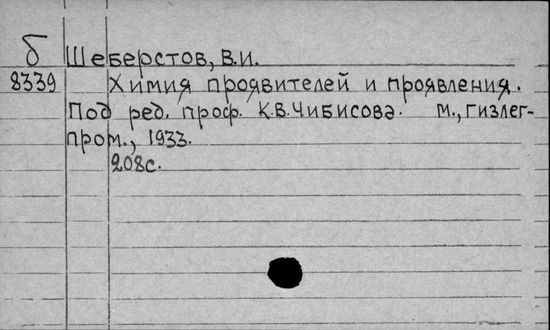 б Шеберстов, В.И.
8339 Химия проявителей и проявления.
Под ред. проф. К.В.Чибисова. М., Гизлег-
пром., 1933.
208с.